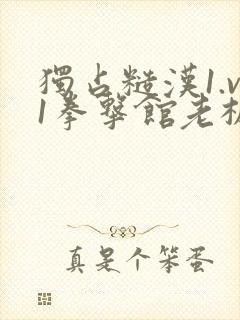 獨占糙漢1.v
1拳擊館老板
真是个笨蛋